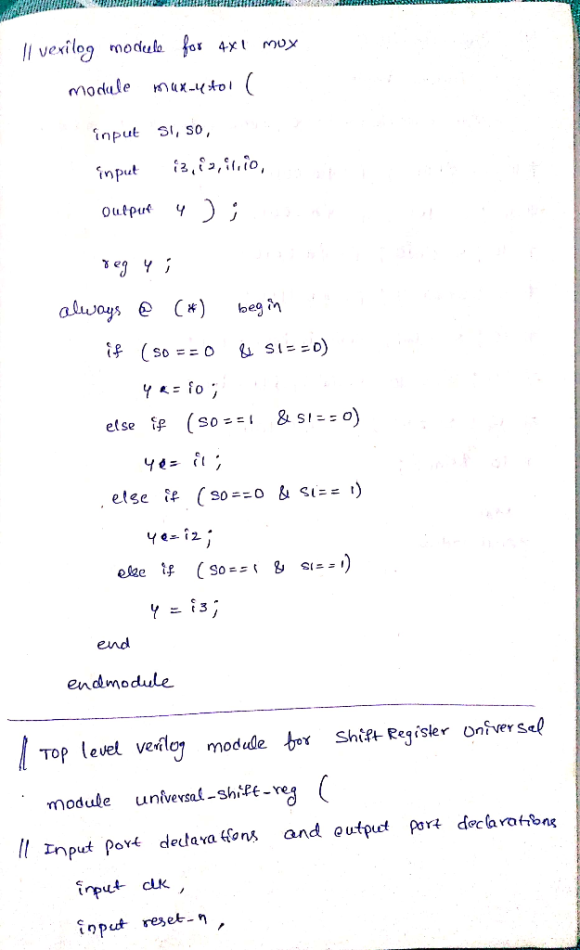 // verilog module for 4x1 mux
module mux_4to1 (
input s1, s0,
input i3, i2, i1, i0,
output y ) ;
reg y ;
always @ (*) begin
if ( s0 == 0 & s1 == 0)
y = i0 ;
else if ( s0 == 1 & s1 == 0)
y = i1 ;
else if ( s0 == 0 & s1 == 1)
y = i2 ;
else if ( s0 == 1 & s1 == 1)
y = i3 ;
end
endmodule
// Top level verilog module for Shift Register Universal
module universal_shift_reg (
// Input port declarations and output port declarations
input clk ,
input reset_n ,